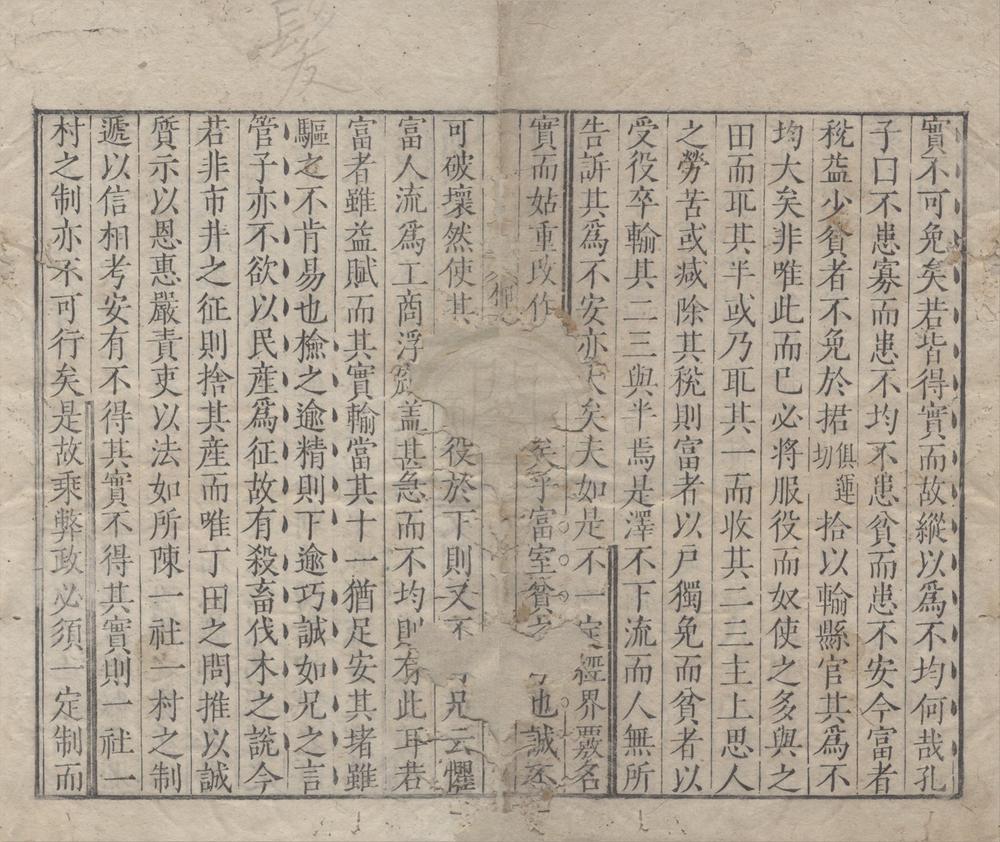 髮
實不可免矣若皆得實而故縱以爲不均何哉孔
子曰不患寡而患不均不患貧而患不安今富者
稅益少貧者不免於捃俱運切拾以輸縣官其爲不
均大矣非唯此而已必將服役而奴使之多與之
田而取其半或乃取其一而收其二三主上思人
之勞苦或減除其稅則富者以戸獨免而貧者以
受役卒輸其二三與半焉是澤不下流而人無所
告訴其爲不安亦大矣夫如是不一定經界覈名
實而姑重改作矣乎富室貧也誠不
可破壞然使其役於下則又不兄云懼
富人流爲工商浮窳蓋甚急而不均則有此耳若
富者雖益賦而其實輸當其十一猶足安其堵雖
驅之不肯易也檢之逾精則下逾巧誠如兄之言
管子亦不欲以民產爲征故有殺畜伐木之說今
若非市井之征則捨其產而唯丁田之問推以誠
質示以恩惠嚴責吏以法如所陳一社一村之制
遞以信相考安有不得其實不得其實則一社一
村之制亦不可行矣是故乘弊政必須一定制而